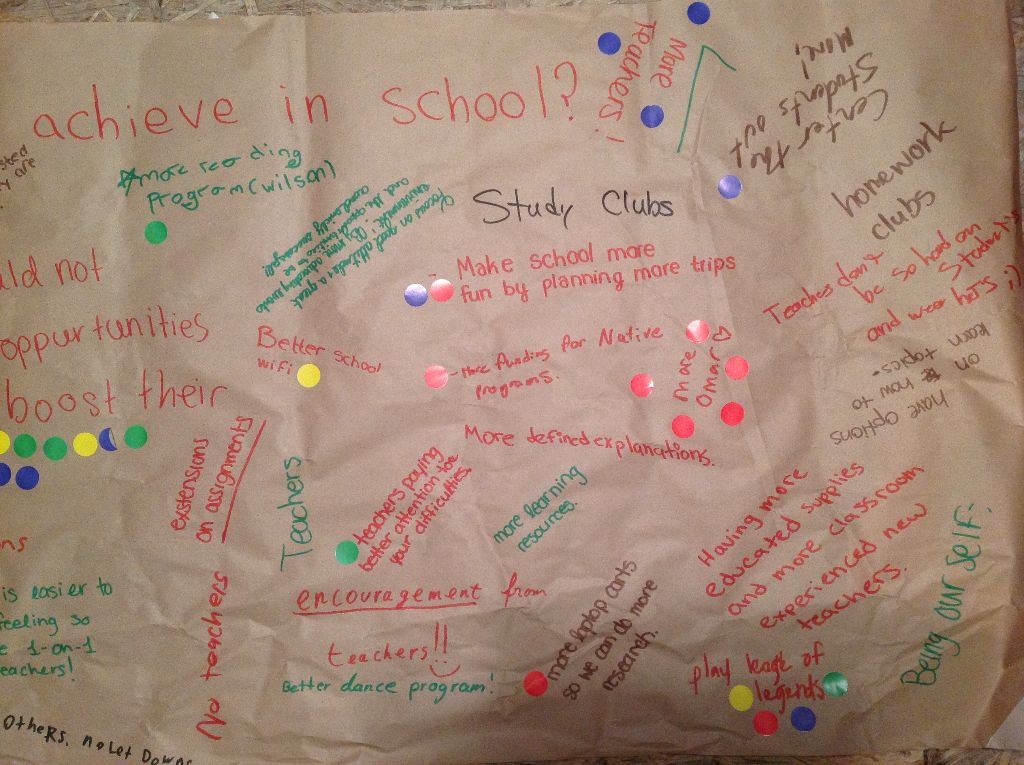 achieve in School?
More
Teachers!
Center the
Students out
More!
homework
clubs
sted
are
more reading
program (wilson)
Focus on
good attitudes & a great
environment!
and
academically
Study Clubs
- Make school more
fun by planning more trips
uld not
oppurtunities
boost their
Better School
wifi
- More funding for Native
programs.
more
Omar
Teaches don't
be so hard on
and wear hats ;)
Students
have options
on how to
learn topics.
More defined explanations.
Extensions
on assignments
Teachers
teachers paying
better attention to
your difficulties.
more learning
resources.
Having more
educated supplies
and more classroom
experienced new
teachers.
Being our self.
ons
is easier to
feeling so
e 1-on-1
eachers!
No teachers
encouragement from
teachers!!
Better dance program!
more laptop carts
so we can do more
research.
play leage of
legends
Others. no Let Downs